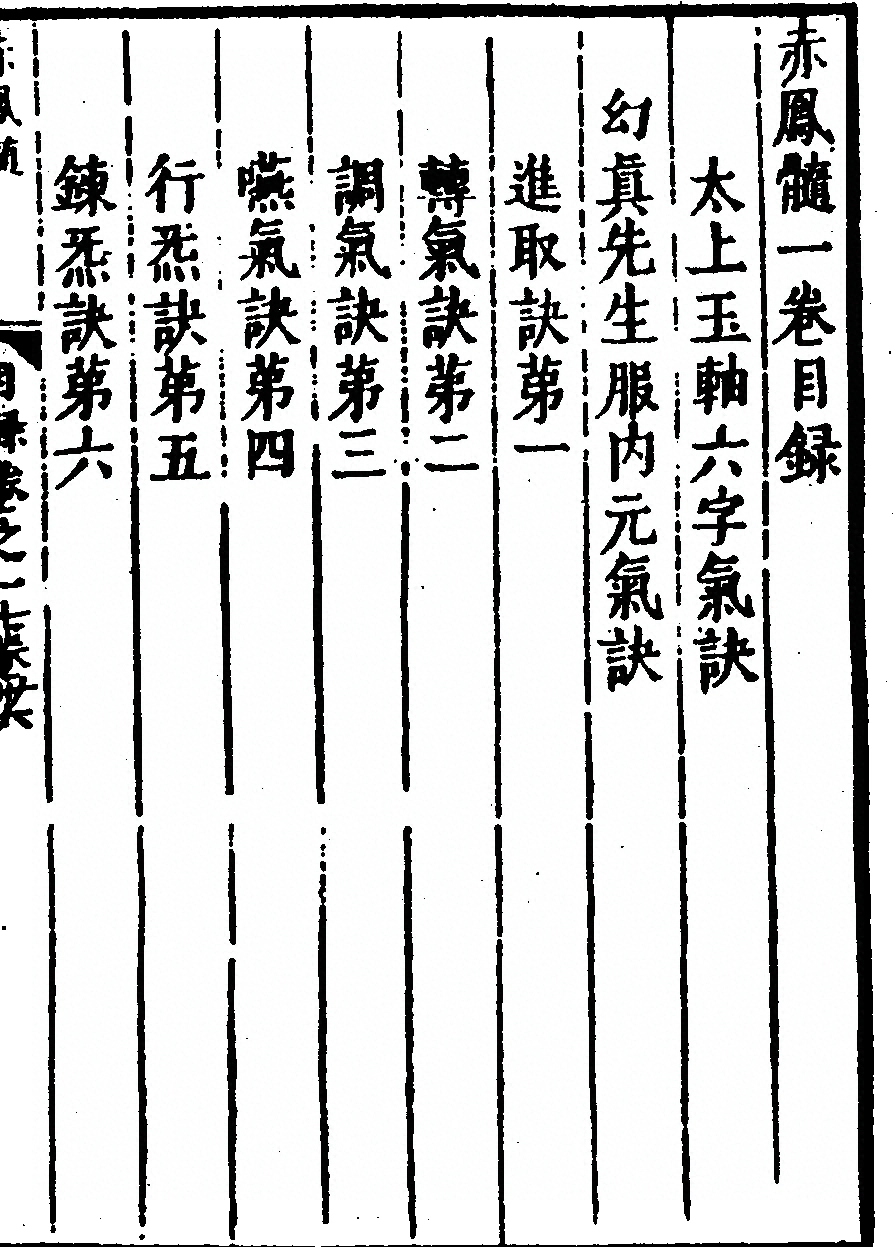 赤鳳髓一卷目録
太上玉軸六字氣訣
幻眞先生服内元氣訣
進取訣第一
轉氣訣第二
調氣訣第三
嚥氣訣第四
行炁訣第五
鍊炁訣第六